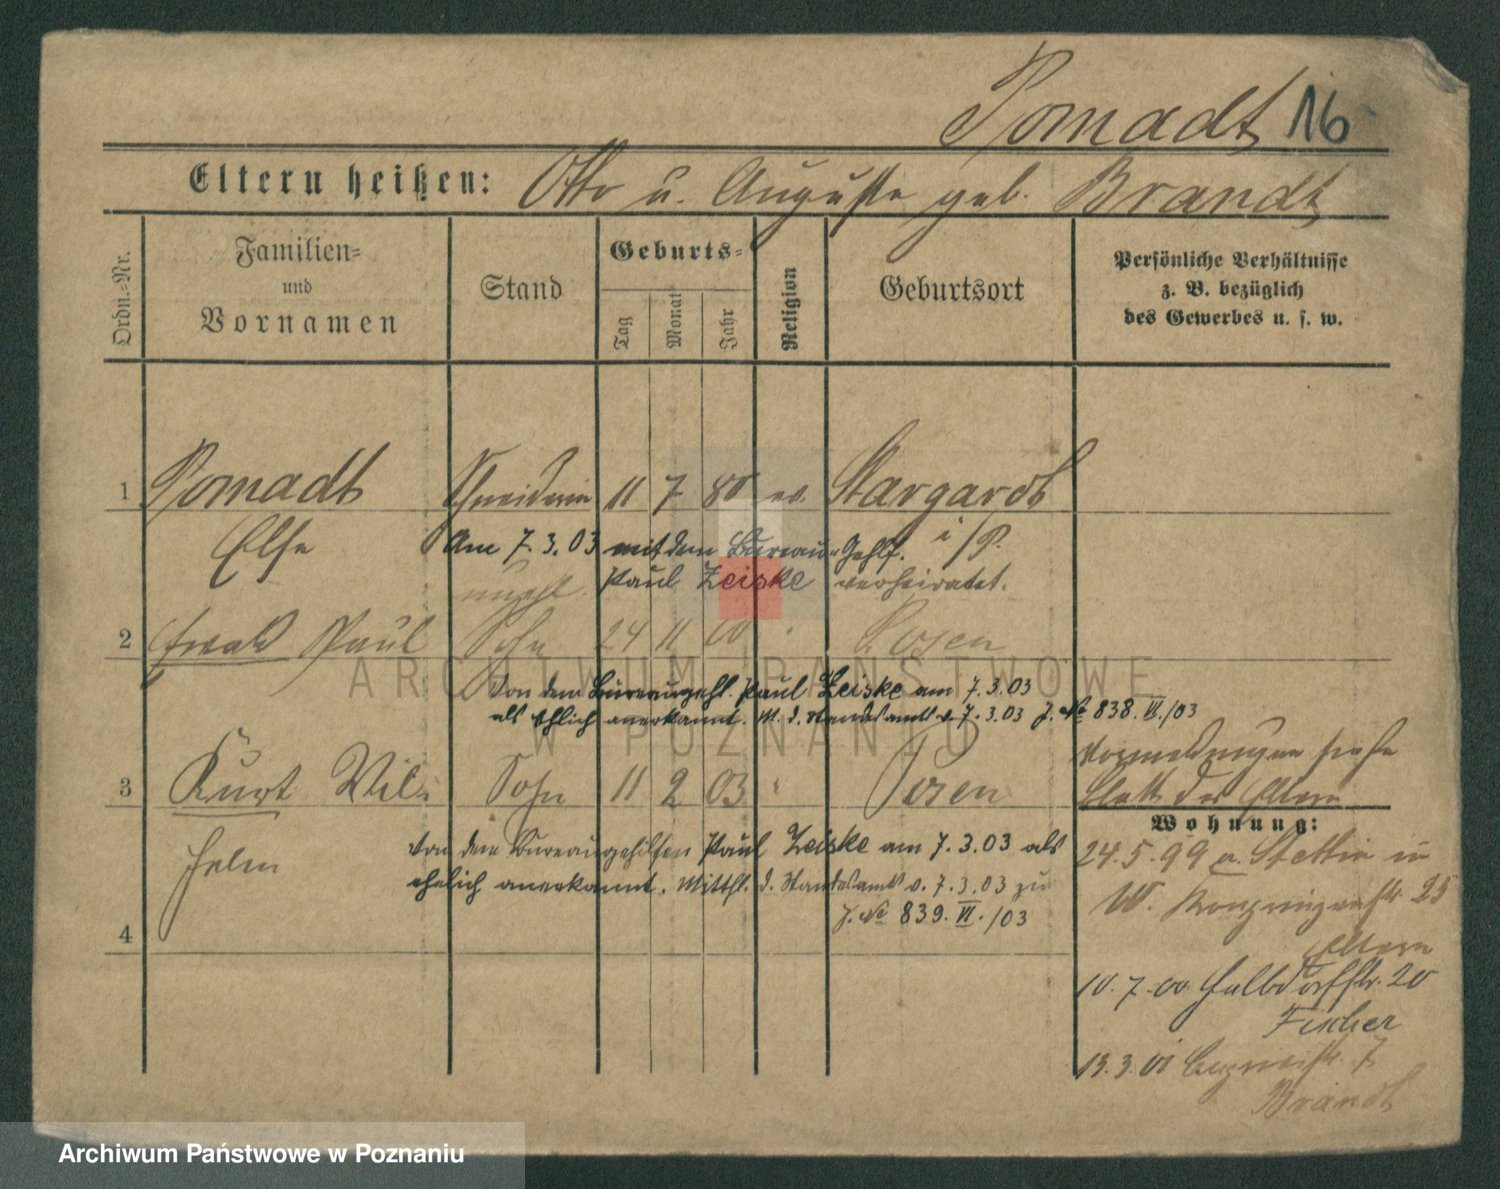 Pomadt 16
Eltern heißen: Otto u. Auguste geb. Brandt
Ordn.-Nr.
Familien-
und
Vornamen
Stand
Geburts-
Tag
Monat
Jahr
Religion
Geburtsort
Persönliche Verhältnisse
z. B. bezüglich
des Gewerbes u. s. w.
1 Pomadt Schneiderin 11 7 80 ev. Stargardt
Else i/P.
Am 7.3.03 mit dem Bureau-Gehlf.
unehl. Paul Zeiske verheiratet.
2 Paul Sohn 24 11 00 " Posen
Von dem Bureaugehl. Paul Zeiske am 7.3.03
als ehlich anerkannt. M. d. Standesamts v. 7.3.03 J. № 838. VI./03
Vormeldungen siehe
Blatt der Eltern
3 Kurt Wil- Sohn 11 2 03 " Posen
helm
Von dem Bureaugehilfen Paul Zeiske am 7.3.03 als
ehelich anerkannt. Mitthl. d. Standesamts v. 7.3.03 zu
J. № 839. VI./03
4
Wohnung:
24.5.99 a. Stettin in
W. Kronprinzenstr. 25
Eltern
10.7.00 Halbdorfstr. 20
Fischer
13.3.01 7
Brandt
ARCHIWUM PAŃSTWOWE
W POZNANIU
Archiwum Państwowe w Poznaniu